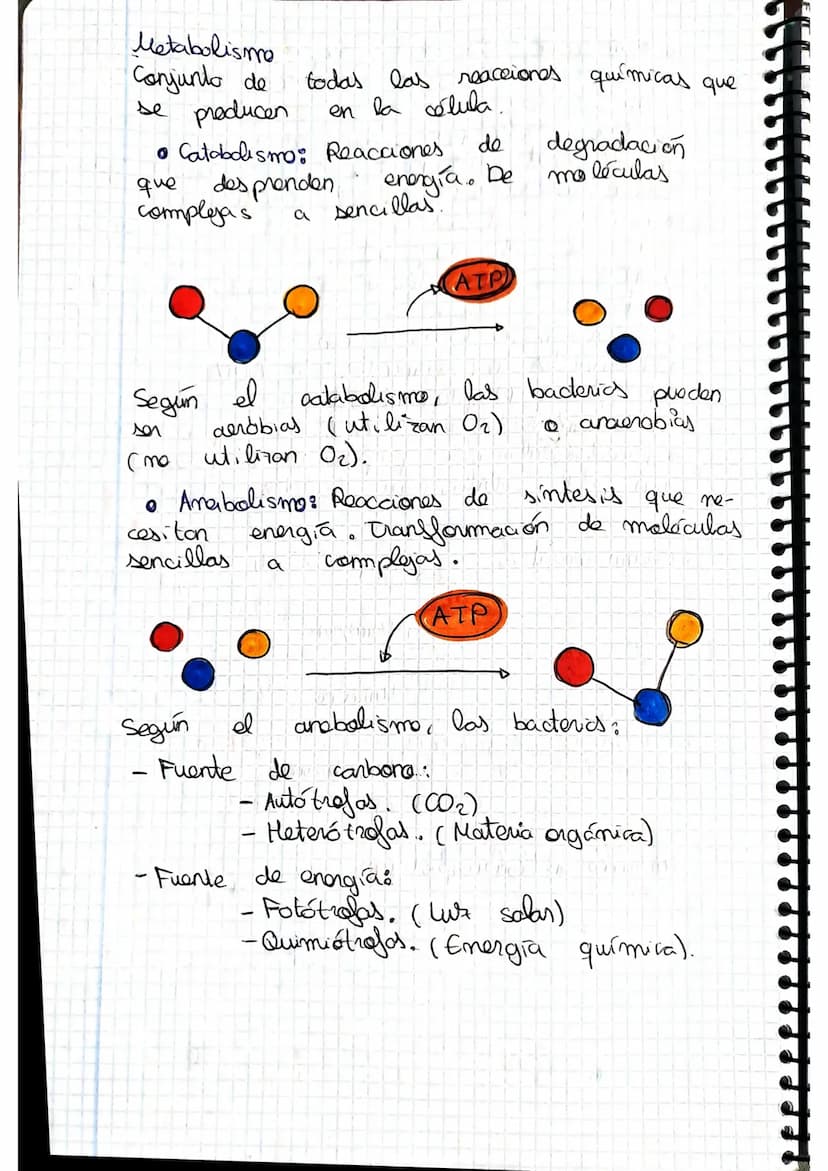 Metabolismo
Conjunto de todas las reacciones químicas que
se producen en la célula.
• Catabolismo: Reacciones de degradación
que desprenden energía. De moléculas
complejas a sencillas.
ATP
Según el catabolismo, las bacterias pueden
ser aerobias (utilizan O2) o anaerobias
(no utilizan O2).
• Anabolismo: Reacciones de síntesis que ne-
cesitan energía. Transformación de moléculas
sencillas a complejas.
ATP
Según el anabolismo, las bacterias:
- Fuente de carbono:
- Autótrofas. (CO2)
- Heterótrofas. (Materia orgánica)
- Fuente de energía:
- Fotótrofas. (Luz solar)
- Quimiótrofas. (Energía química).